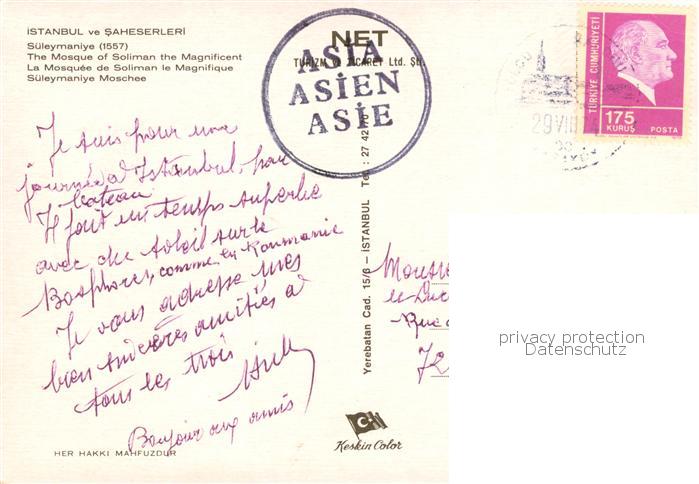 İSTANBUL ve ŞAHESERLERİ
Süleymaniye (1557)
The Mosque of Soliman the Magnificent
La Mosquée de Soliman le Magnifique
Süleymaniye Moschee
NET
TURİZM ve TİCARET Ltd. Şti.
ASIA
ASIEN
ASIE
29 VIII
TÜRKİYE CUMHURİYETİ
175
KURUŞ POSTA
Je suis pour une
journée à Istanbul, par
bateau
Il fait un temps superbe
avec du soleil sur le
Bosphore, comme en Roumanie
Je vous adresse mes
bien sincères amitiés à
tous les trois
Bonjour aux amis
Yerebatan Cad. 15/8 - İSTANBUL Tel : 27 42 70
Rue
privacy protection
Datenschutz
Keskin Color
HER HAKKI MAHFUZDUR